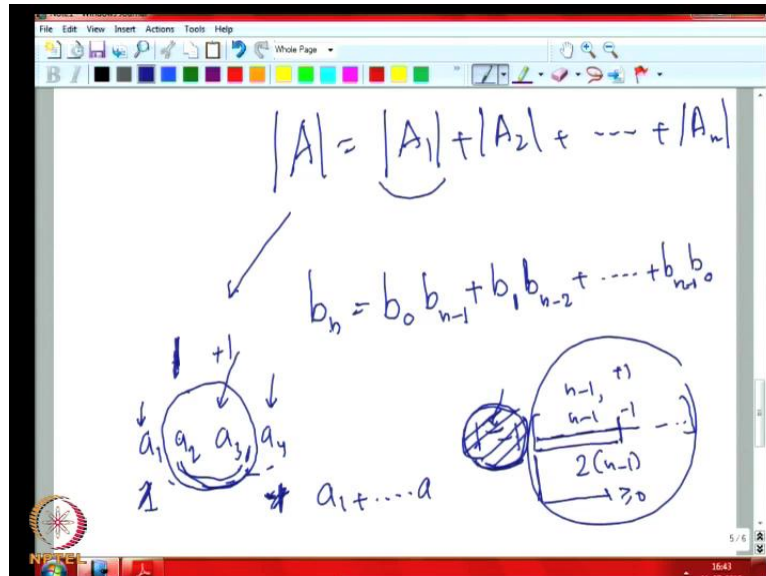 File Edit View Insert Actions Tools Help
Whole Page
B I
|A| = |A₁| + |A₂| + ---- + |Aₙ|
bₙ = b₀ bₙ₋₁ + b₁ bₙ₋₂ + ---- + bₙ₋₁ b₀
1 +1
a₁ a₂ a₃, a₄
a₁ + ---- a
n-1, +1
n-1 -1 - - -
2(n-1)
≥0
5/6
NPTEL
16:43